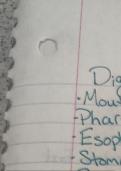 Dig
·Mou
·Phar
·Esoph
·Stom